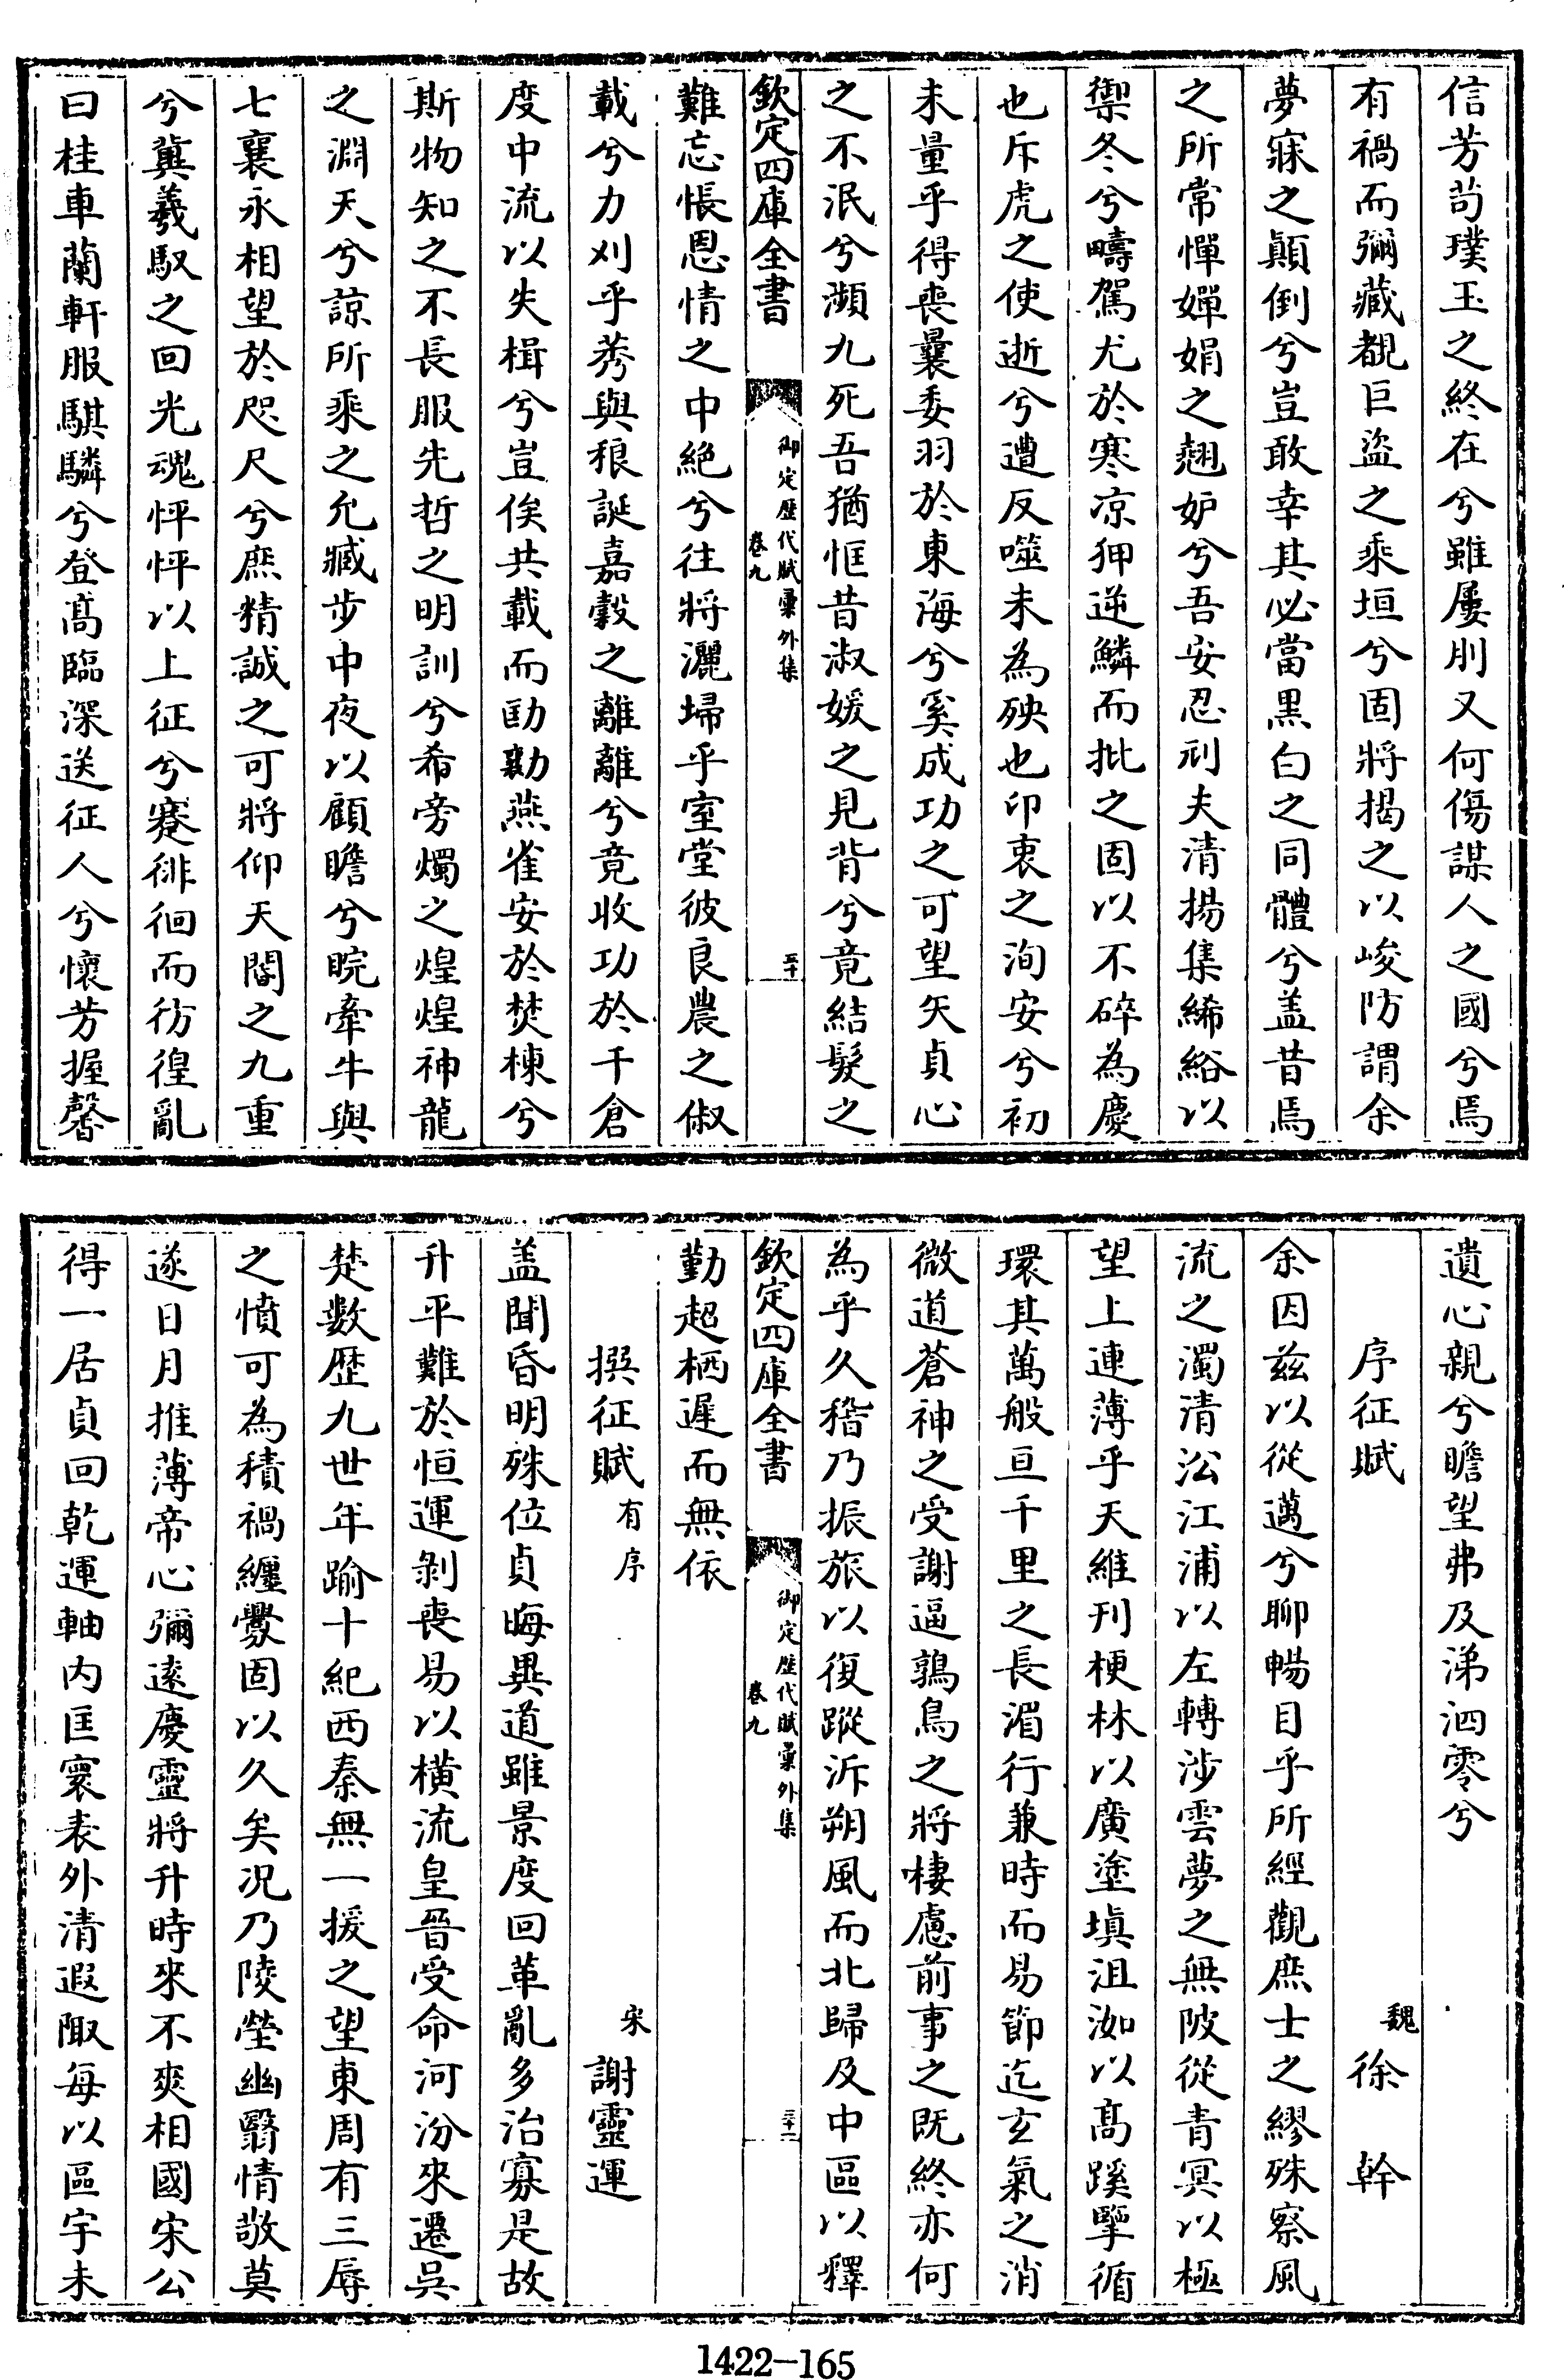 信芳苟璞玉之終在兮雖屢刖又何傷謀人之國兮焉
有禍而彌藏覩巨盜之乘垣兮固將揭之以峻防謂余
夢寐之顛倒兮豈敢幸其必當黑白之同體兮盖昔焉
之所常憚嬋娟之翹妒兮吾安忍刓夫清揚集絺綌以
禦冬兮疇駕尤於寒凉狎逆鱗而批之固以不碎為慶
也斥虎之使逝兮遭反噬未為殃也卬衷之洵安兮初
未量乎得喪曩委羽於東海兮奚成功之可望矢貞心
之不泯兮瀕九死吾猶恇昔淑媛之見背兮竟結髮之
欽定四庫全書
御定歴代賦彚外集
卷九
三十
難忘悵恩情之中絶兮往將灑埽乎室堂彼良農之俶
載兮力刈乎莠與稂誕嘉穀之離離兮竟收功於千倉
度中流以失楫兮豈俟共載而劻勷燕雀安於焚棟兮
斯物知之不長服先哲之明訓兮希旁燭之煌煌神龍
之淵天兮諒所乘之允臧步中夜以顧瞻兮睆牽牛與
七襄永相望於咫尺兮庶精誠之可將仰天閽之九重
兮冀羲馭之回光魂怦怦以上征兮蹇徘徊而彷徨亂
曰桂車蘭軒服騏驎兮登髙臨深送征人兮懷芳握馨
遺心親兮瞻望弗及涕泗零兮
序征賦
魏 徐幹
余因兹以從邁兮聊暢目乎所經觀庶士之繆殊察風
流之濁清沿江浦以左轉涉雲夢之無陂從青冥以極
望上連薄乎天維刋梗林以廣塗填沮洳以髙蹊擥循
環其萬般亘千里之長湄行兼時而易節迄玄氣之消
微道蒼神之受謝逼鶉鳥之將棲慮前事之既終亦何
為乎久稽乃振旅以復蹤泝朔風而北歸及中區以釋
欽定四庫全書
御定歴代賦彚外集
卷九
三十一
勤超栖遲而無依
撰征賦有序
宋 謝靈運
盖聞昏明殊位貞晦異道雖景度回革亂多治寡是故
升平難於恒運剝喪易以横流皇晉受命河汾來遷吳
楚數歴九世年踰十紀西秦無一援之望東周有三辱
之憤可為積禍纏釁固以久矣况乃陵塋幽翳情敬莫
遂日月推薄帝心彌遠慶靈將升時來不爽相國宋公
得一居貞回乾運軸内匡寰表外清遐陬每以區宇未
1422-165